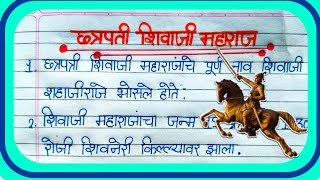 छत्रपती शिवाजी महाराज
1. छत्रपती शिवाजी महाराजांचे पूर्ण नाव शिवाजी
शहाजीराजे भोसले होते.
2. शिवाजी महाराजांचा जन्म
रोजी शिवनेरी किल्ल्यावर झाला.